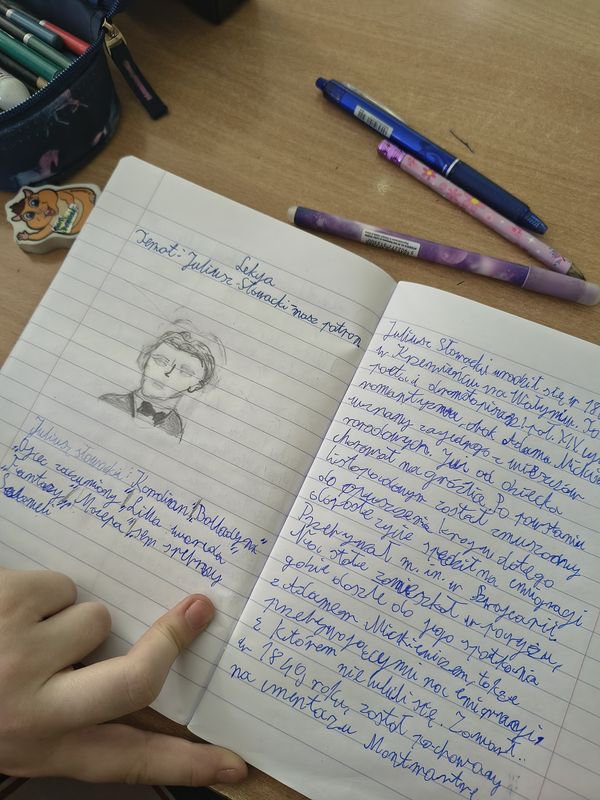 Lekja
Temat: Juliusz Słowacki-nasz patron
Juliusz słowacki: Kordian, Balladyna"
"Ojciec zadżumiony", Lilla
"Fantazy" "Mazepa" Sen srebrny
Salomeii
Juliusz Słowacki urodził się w 18
w Krzemieńcu na Wołyniu. To
poeta i dramatopisarz, poł. XIX w
romantyzmu, obok Adama Mickiew
uznany za jednego z wieszczów
narodowych. Już od dziecka
chorował na gruźlicę. Po powstaniu
listopadowym został zmuszony
do opuszczenia kraju w dalsze
życie spędził na emigracji
Przebywał m. in. w Szwajcarii.
stałe zamieszkał w paryżu,
gdzie doszło do jego spotkania
z Adamem Mickiewiczem także
przebywającymu na emigracji,
z którem nie lubili się. Zmarł..
w 1849 roku, został pochowany
na cmentarzu Montmartre